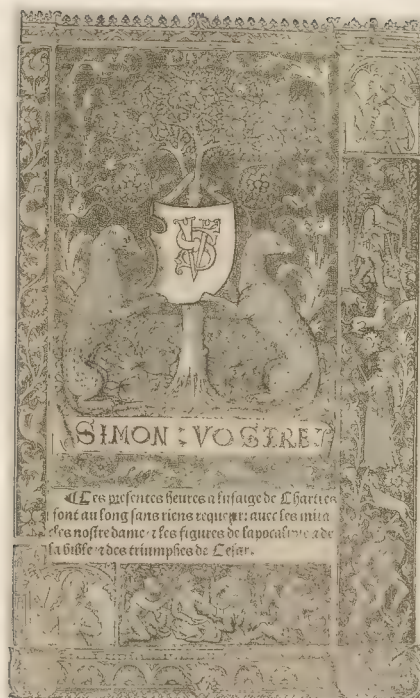 SV
SIMON : VOSTRE
¶ Ces presentes heures a lusaige de Chartres
sont au long sans riens requerir: auec les mira
cles nostre dame ⁊ les figures de lapocalipse ⁊ de
la bible ⁊ des triumphes de Cesar.